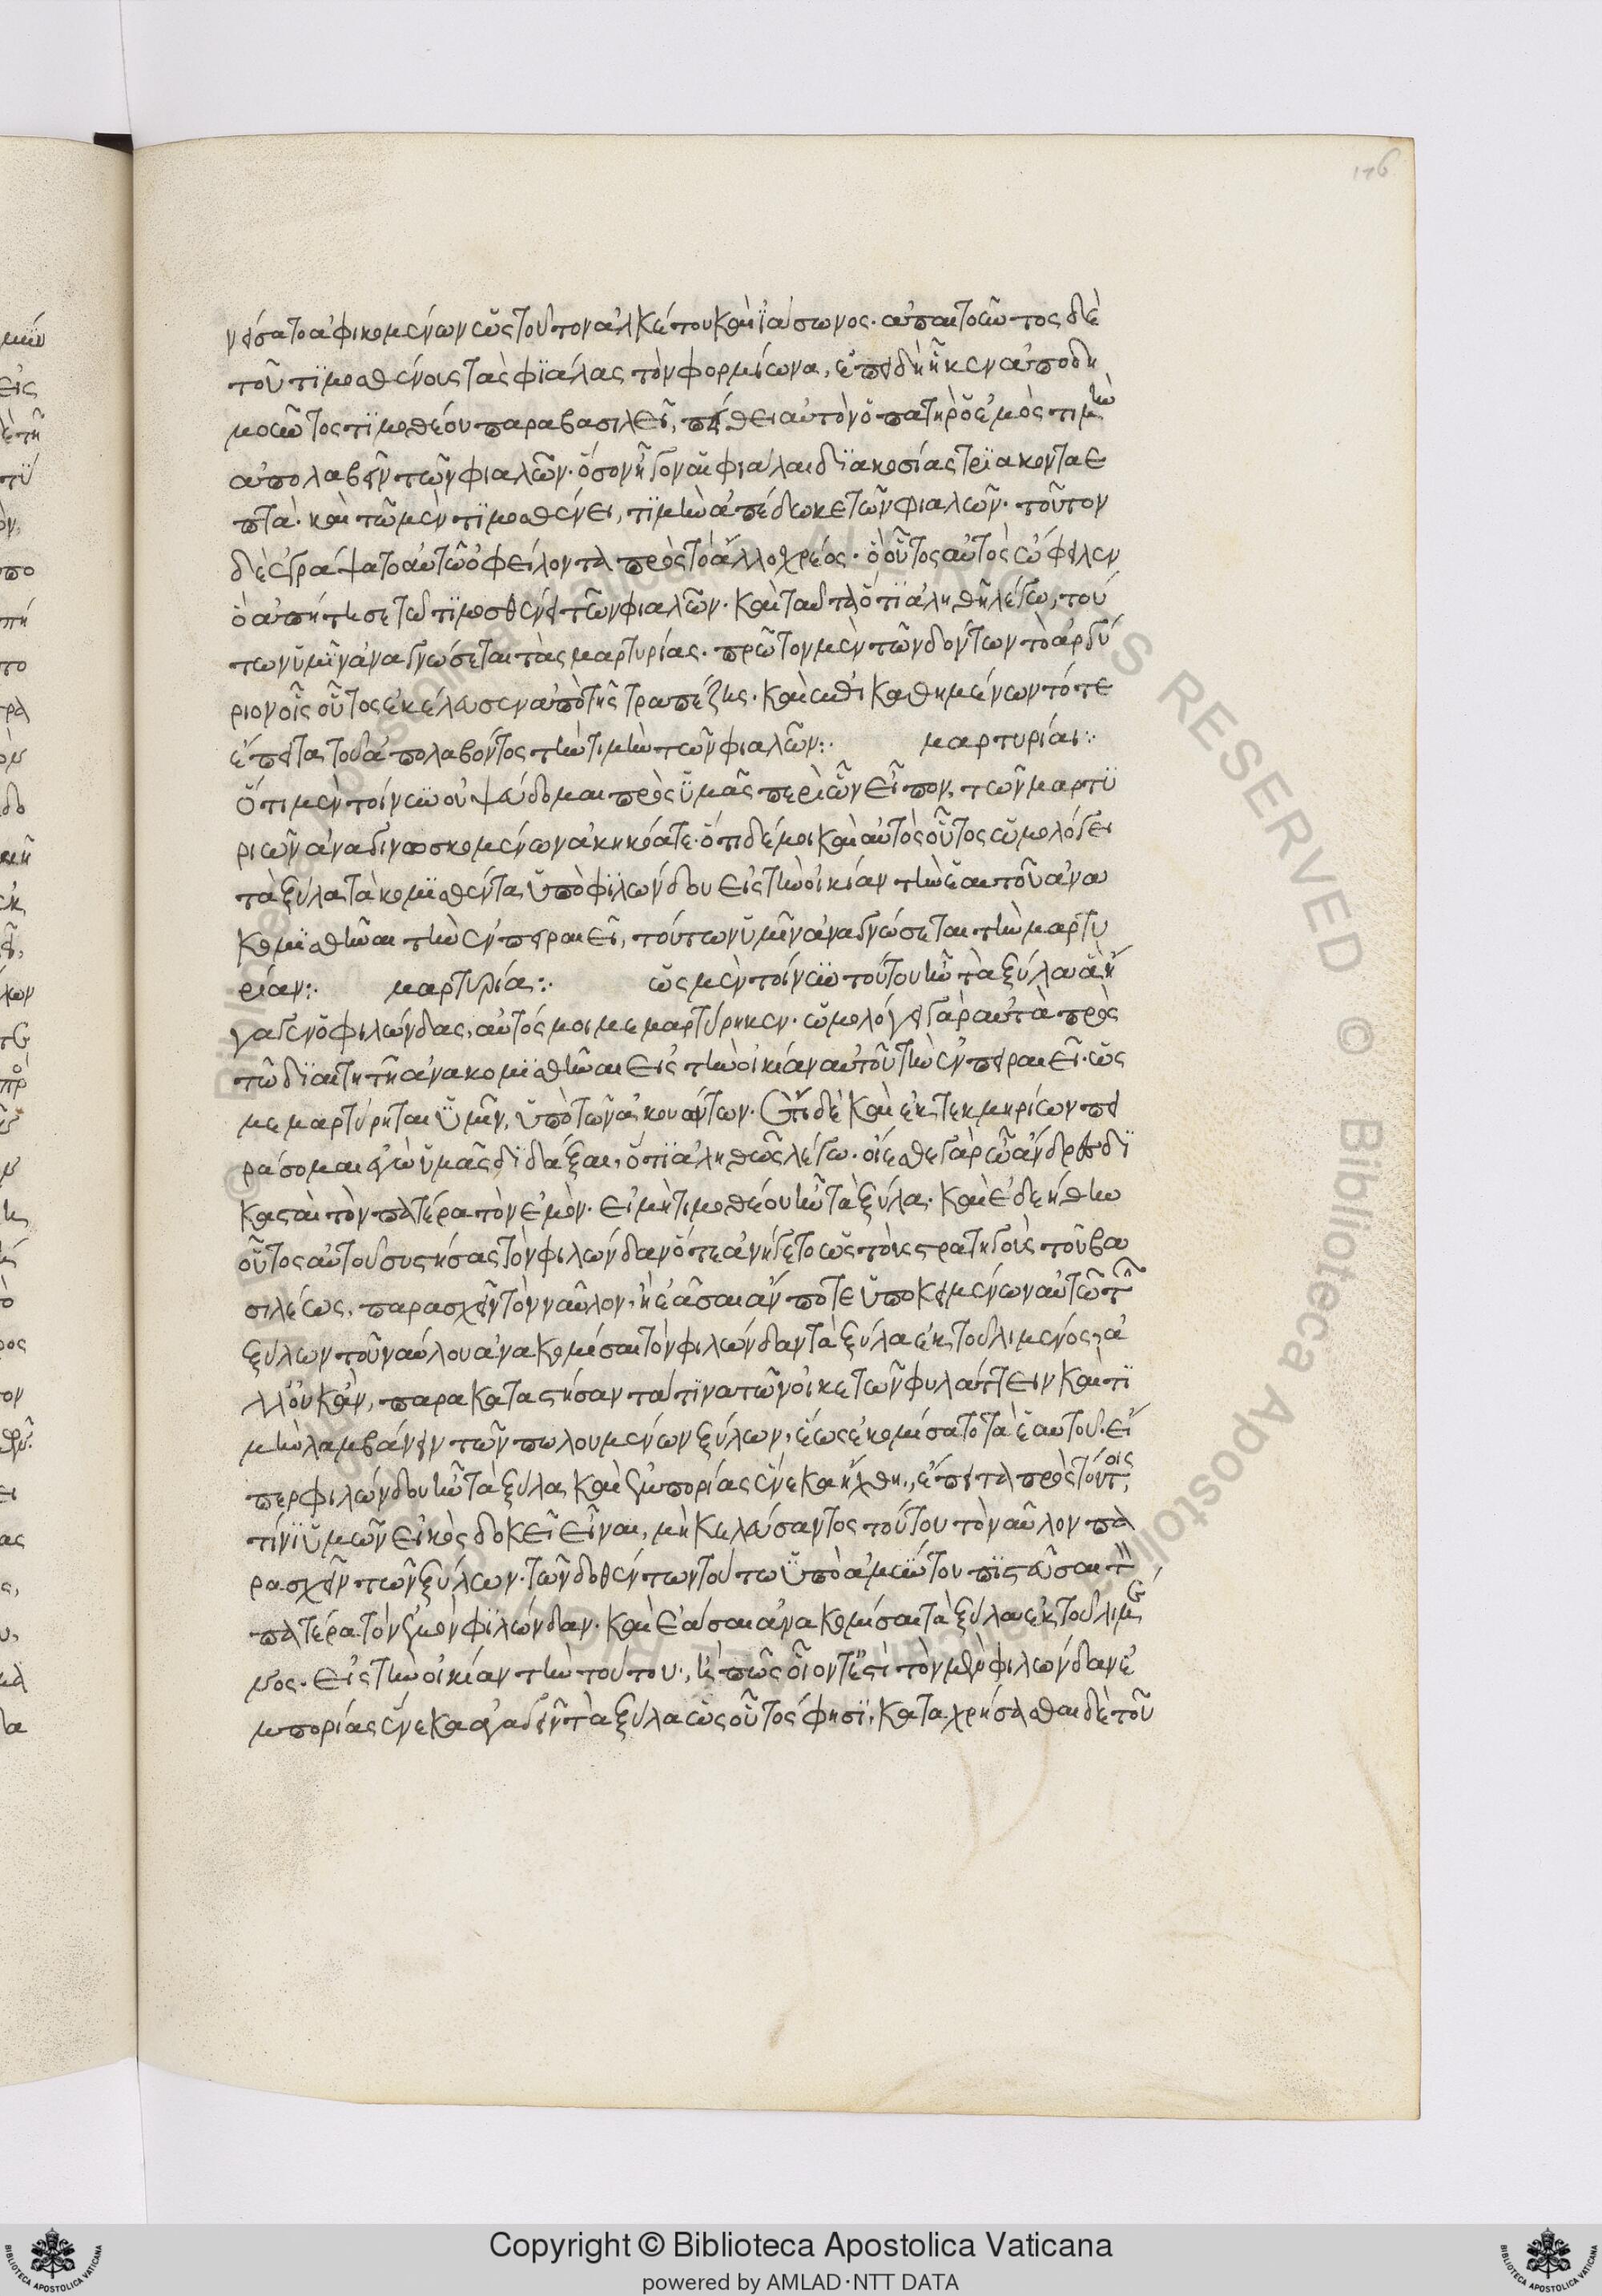 176
νείσατο ἀφικομένων ὡς τοῦτον ἀλκέτου καὶ ϊάσωνος· ἀπαιτοῦντος δὲ
τοῦ τϊμοσθένους τὰς φϊάλας τὸν φορμίωνα, ἐπειδὴ ἧκεν ἀποδη
μοῦντος τϊμοθέου παρα βασιλεῖ, πείθει αὐτὸν ὁ πατὴρ ὁ ἐμὸς τιμὴν
ἀπολαβεῖν τῶν φιαλῶν· ὅσον ἦγον αἱ φιάλαι δϊακοσίας τρϊακοντα ε
πτὰ· καὶ τῶ μὲν τϊμοσθένει, τϊμὴν ἀπέδωκε τῶν φιαλῶν· τοῦτον
δὲ ἐγράψατο αὑτῶ ὀφείλοντα πρὸς τὸ ἄλλο χρέος· ὃ οὗτος αὐτὸς ὤφειλεν
ὃ ἀπήτησε τῶ τϊμοσθένει τῶν φιαλῶν· καὶ ταῦτα ὅτϊ ἀληθῆ λέγω, τού
των ὑμῖν ἀναγνώσεται τὰς μαρτυρίας· πρῶτον μὲν τῶν δόντων τὸ ἀργύ
ριον οἷς οὗτος ἐκέλευσεν ἀπὸ τῆς τραπέζης· καὶ ἐπικαθημένων τότε
ἔπειτα τοῦ ἀπολαβόντος τὴν τιμὴν τῶν φιαλῶν:· μαρτυρίαι:·
Ὅτι μὲν τοίνυν οὐ ψεύδομαι πρὸς ὑμᾶς περὶ ὧν εἶπον, τῶν μαρτϋ
ριῶν ἀναγινωσκομένων ἀκηκόατε· ὅτι δέ μοι καὶ αὐτὸς οὗτος ὡμολόγει
τὰ ξύλα τὰ κομϊσθέντα ὑπὸ φϊλώνδου εἰς τὴν οἰκίαν τὴν ἑαυτοῦ ἀνα
κομϊσθῆναι τὴν ἐν πειραιεῖ, τούτων ὑμῖν ἀναγνώσεται τὴν μαρτυ
ρίαν:· μαρτυρία:· ὡς μὲν τοίνυν τούτου ἦν τὰ ξύλα ἃ ἤ
γαγεν ὁ φιλώνδας, αὐτός μοι μεμαρτύρηκεν· ὡμολόγει γὰρ αὐτὰ πρὸς
τῶ δϊαιτητῆ ἀνακομϊσθῆναι εἰς τὴν οἰκίαν αὐτοῦ τὴν ἐν πειραιεῖ· ὡς
μεμαρτύρηται ὑμῖν, ὑπὸ τῶν ἀκουόντων. Ἔτι δὲ καὶ ἐκ τεκμηρίων πει
ράσομαι ἐγὼ ὑμᾶς δϊδάξαι, ὅτϊ ἀληθῶς λέγω. οἴεσθε γὰρ ὦ ἄνδρες δϊ
κασταὶ τὸν πατέρα τὸν ἐμὸν· εἰ μὴ τιμοθέου ἦν τὰ ξύλα· καὶ ἐδεήθη
οὗτος αὐτοῦ συστήσας τὸν φιλώνδαν ὅτε ἀνήγετο ὡς τοὺς στρατηγοὺς τοῦ βα
σιλέως, παρασχεῖν τὸν ναῦλον, ἢ ἐᾶσαι ἄν ποτε ὑποκειμένων αὐτῶ τῶν
ξύλων τοῦ ναύλου ἀνακομίσαι τὸν φιλώνδαν τὰ ξύλα ἐκ τοῦ λιμένος, ἀ
λλ' οὐκ ἂν, παρακαταστήσαντά τϊνα τῶν οἰκετῶν φυλάττειν καὶ τϊ
μὴν λαμβάνειν τῶν πωλουμένων ξύλων, ἕως ἐκομίσατο τὰ ἑαυτοῦ· εἴ
περ φιλώνδου ἦν τὰ ξύλα καὶ ἐμπορίας ἕνεκα ἤχθη, ἔπειτα πρὸς τούτοις
τίνϊ ὑμῶν εἰκὸς δοκεῖ εἶναι, μὴ κελεύσαντος τούτου τὸ ναῦλον πα
ρασχεῖν τῶν ξύλων· τῶν δοθέντων τούτω ὑπὸ ἀμύντου πϊστεῦσαι τὸν
πατέρα τὸν ἐμὸν φϊλώνδαν· καὶ ἐᾶσαι ἀνακομίσαι τὰ ξύλα ἐκ τοῦ λιμέ
νος· εἰς τὴν οἰκίαν τὴν τούτου·, ἢ πῶς οἷόντέ ἐστϊ τὸν μὲν φιλώνδαν ἐ
μπορίας ἕνεκα ἀγαγεῖν τὰ ξύλα ὡς οὗτός φησϊ, καταχρήσασθαι δὲ τοῦ
Copyright © Biblioteca Apostolica Vaticana
powered by AMLAD·NTT DATA